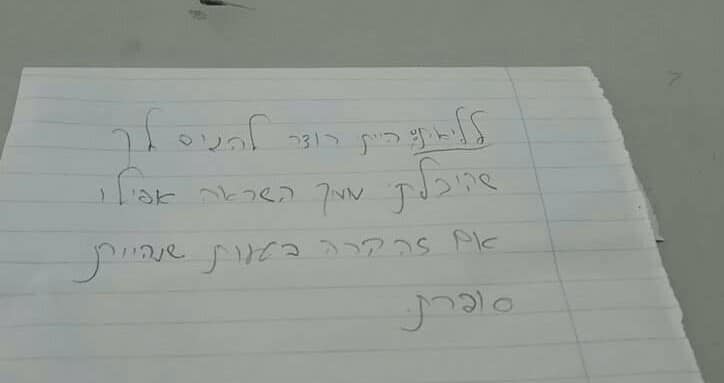 לליאת: הייתי רוצה להגיד לך
שקיבלתי ממך השראה אפילו
אם זה קרה בטעות שהיית
סופרת.